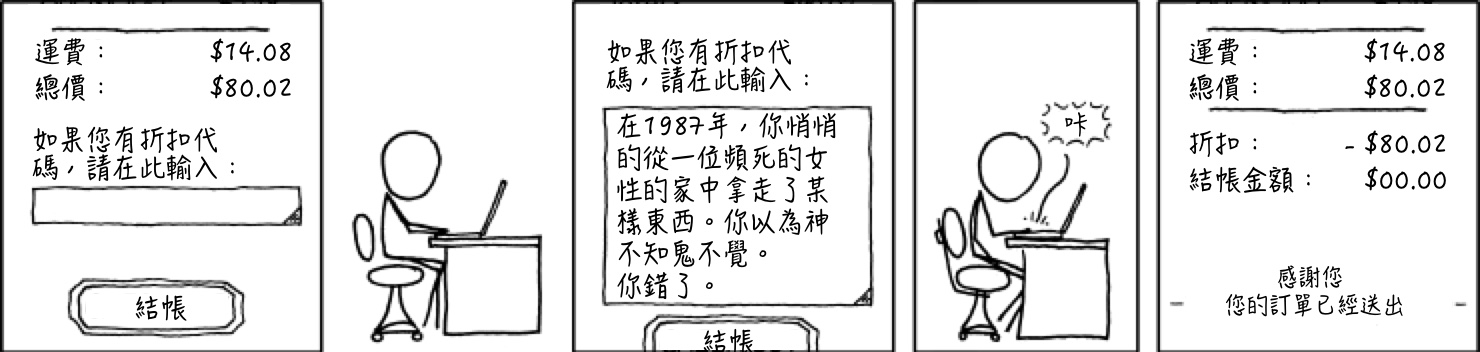 運費： $14.08
總價： $80.02
如果您有折扣代
碼，請在此輸入：
結帳
如果您有折扣代
碼，請在此輸入：
在1987年，你悄悄
的從一位頻死的女
性的家中拿走了某
樣東西。你以為神
不知鬼不覺。
你錯了。
結帳
咔
運費： $14.08
總價： $80.02
折扣： - $80.02
結帳金額： $00.00
感謝您
您的訂單已經送出